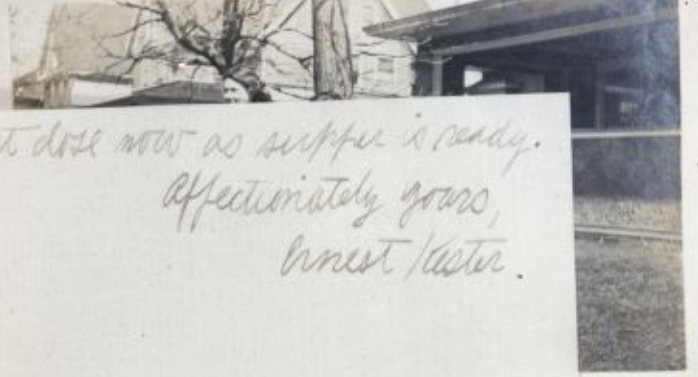 t close now as supper is ready.
Affectionately yours,
Ernest Kester.